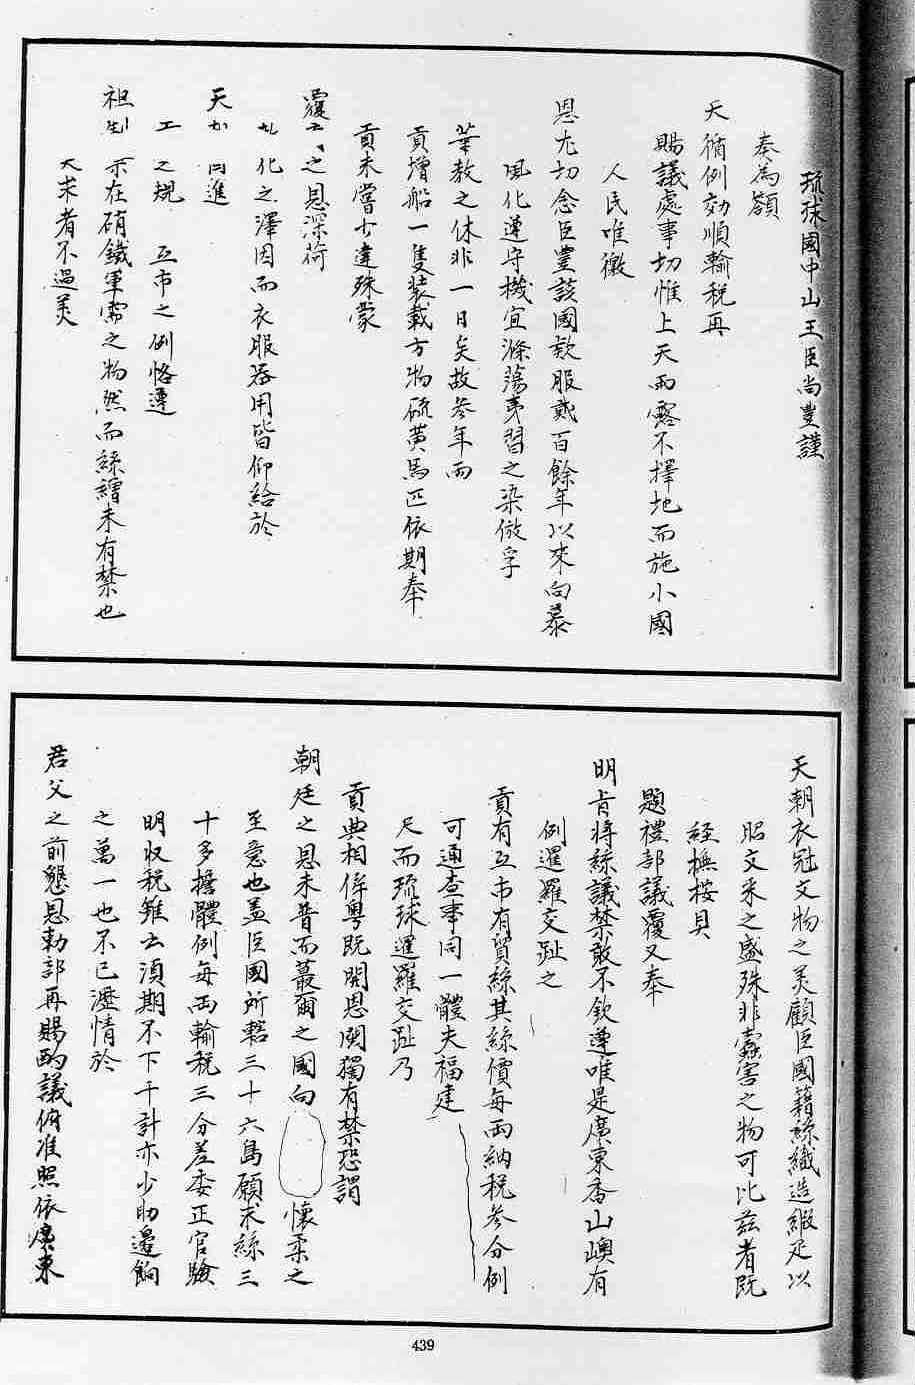 琉球國中山王臣尚豐謹
奉為籲
天循例効順輸税再
賜議處事切惟上天雨露不擇地而施小國
人民唯徼
恩尤切念臣豐該國欵服貳百餘年以來向慕
風化遵守機宜滌蕩夷習之染倣孚
華教之休非一日矣故叁年而
貢增船一隻装載方物硫黄馬匹依期奉
貢未嘗少違殊蒙
覆 之恩深荷
化之澤因而衣服器用皆仰給於
天 進
之規 互市之例恪遵
祖制 示在硝鐵軍需之物然而絲繒未有禁也
求者不過美
天朝衣冠文物之美顧臣國籍絲織造緞疋以
昭文采之盛殊非蠹害之物可比茲者既
経撫按具
題禮部議覆又奉
明肯將絲議禁敢不欽遵唯是廣東香山嶼有
例暹羅交趾之
貢有互市有貿絲其絲價每両納税叁分例
可通查事同一體夫福建
尺而琉球暹羅交趾乃
貢典相侔粤既開恩閩獨有禁恐謂
朝廷之恩未普而蕞爾之國向 懷柔之
至意也盖臣國所轄三十六島願求絲三
十多擔體例每両輸税三分差委正官驗
明収税雖云湏期不下千計亦少助邊餉
之萬一也不已瀝情於
君父之前懇恩勅部再賜酌議俯准照依廣東
439